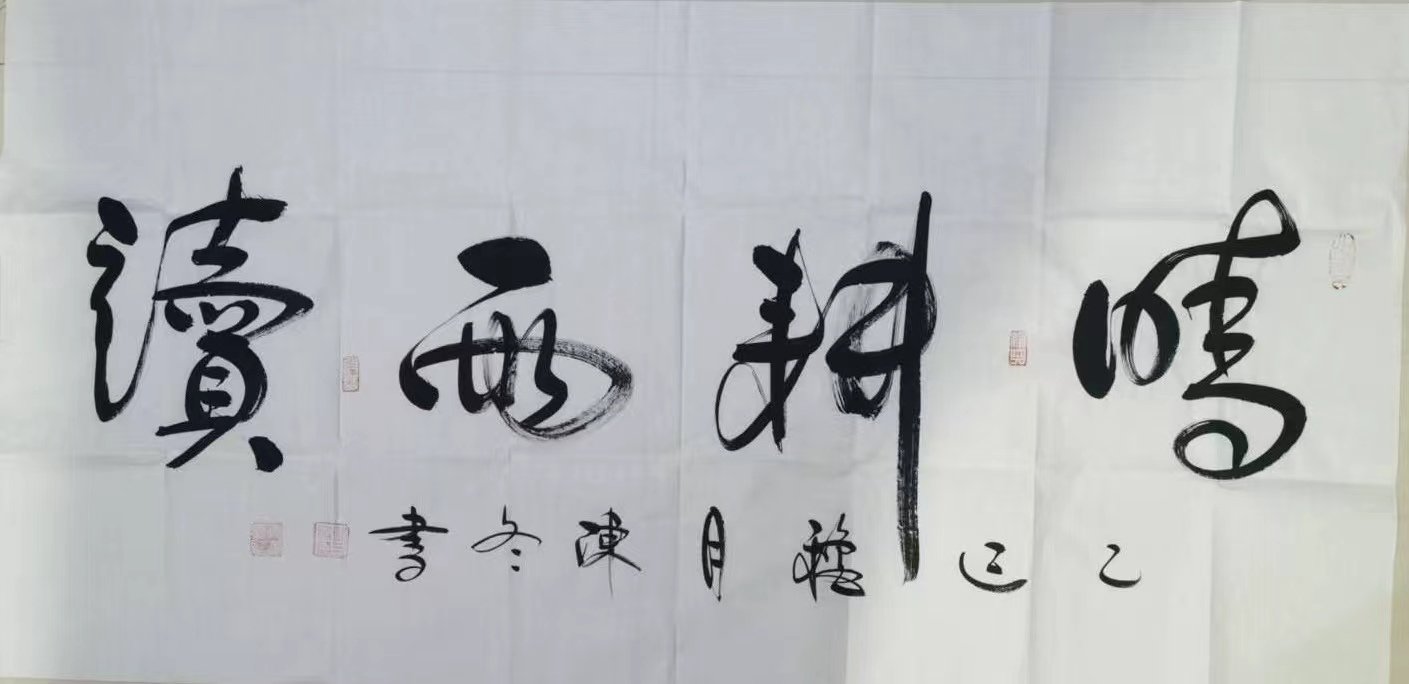 晴耕雨讀
乙巳穐月陳冬書